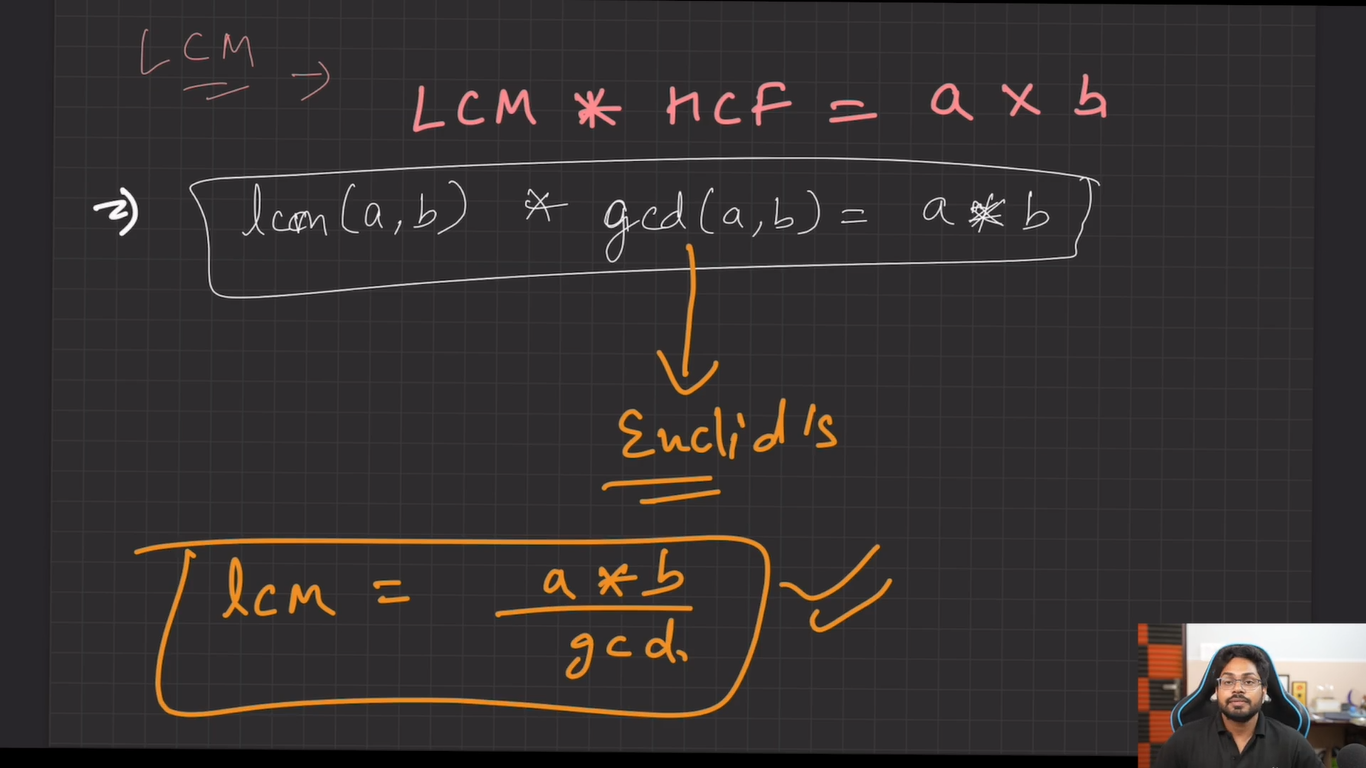 LCM →
LCM * HCF = a × b
⇒ lcm(a,b) * gcd(a,b) = a * b
Euclid's
lcm = a * b
gcd